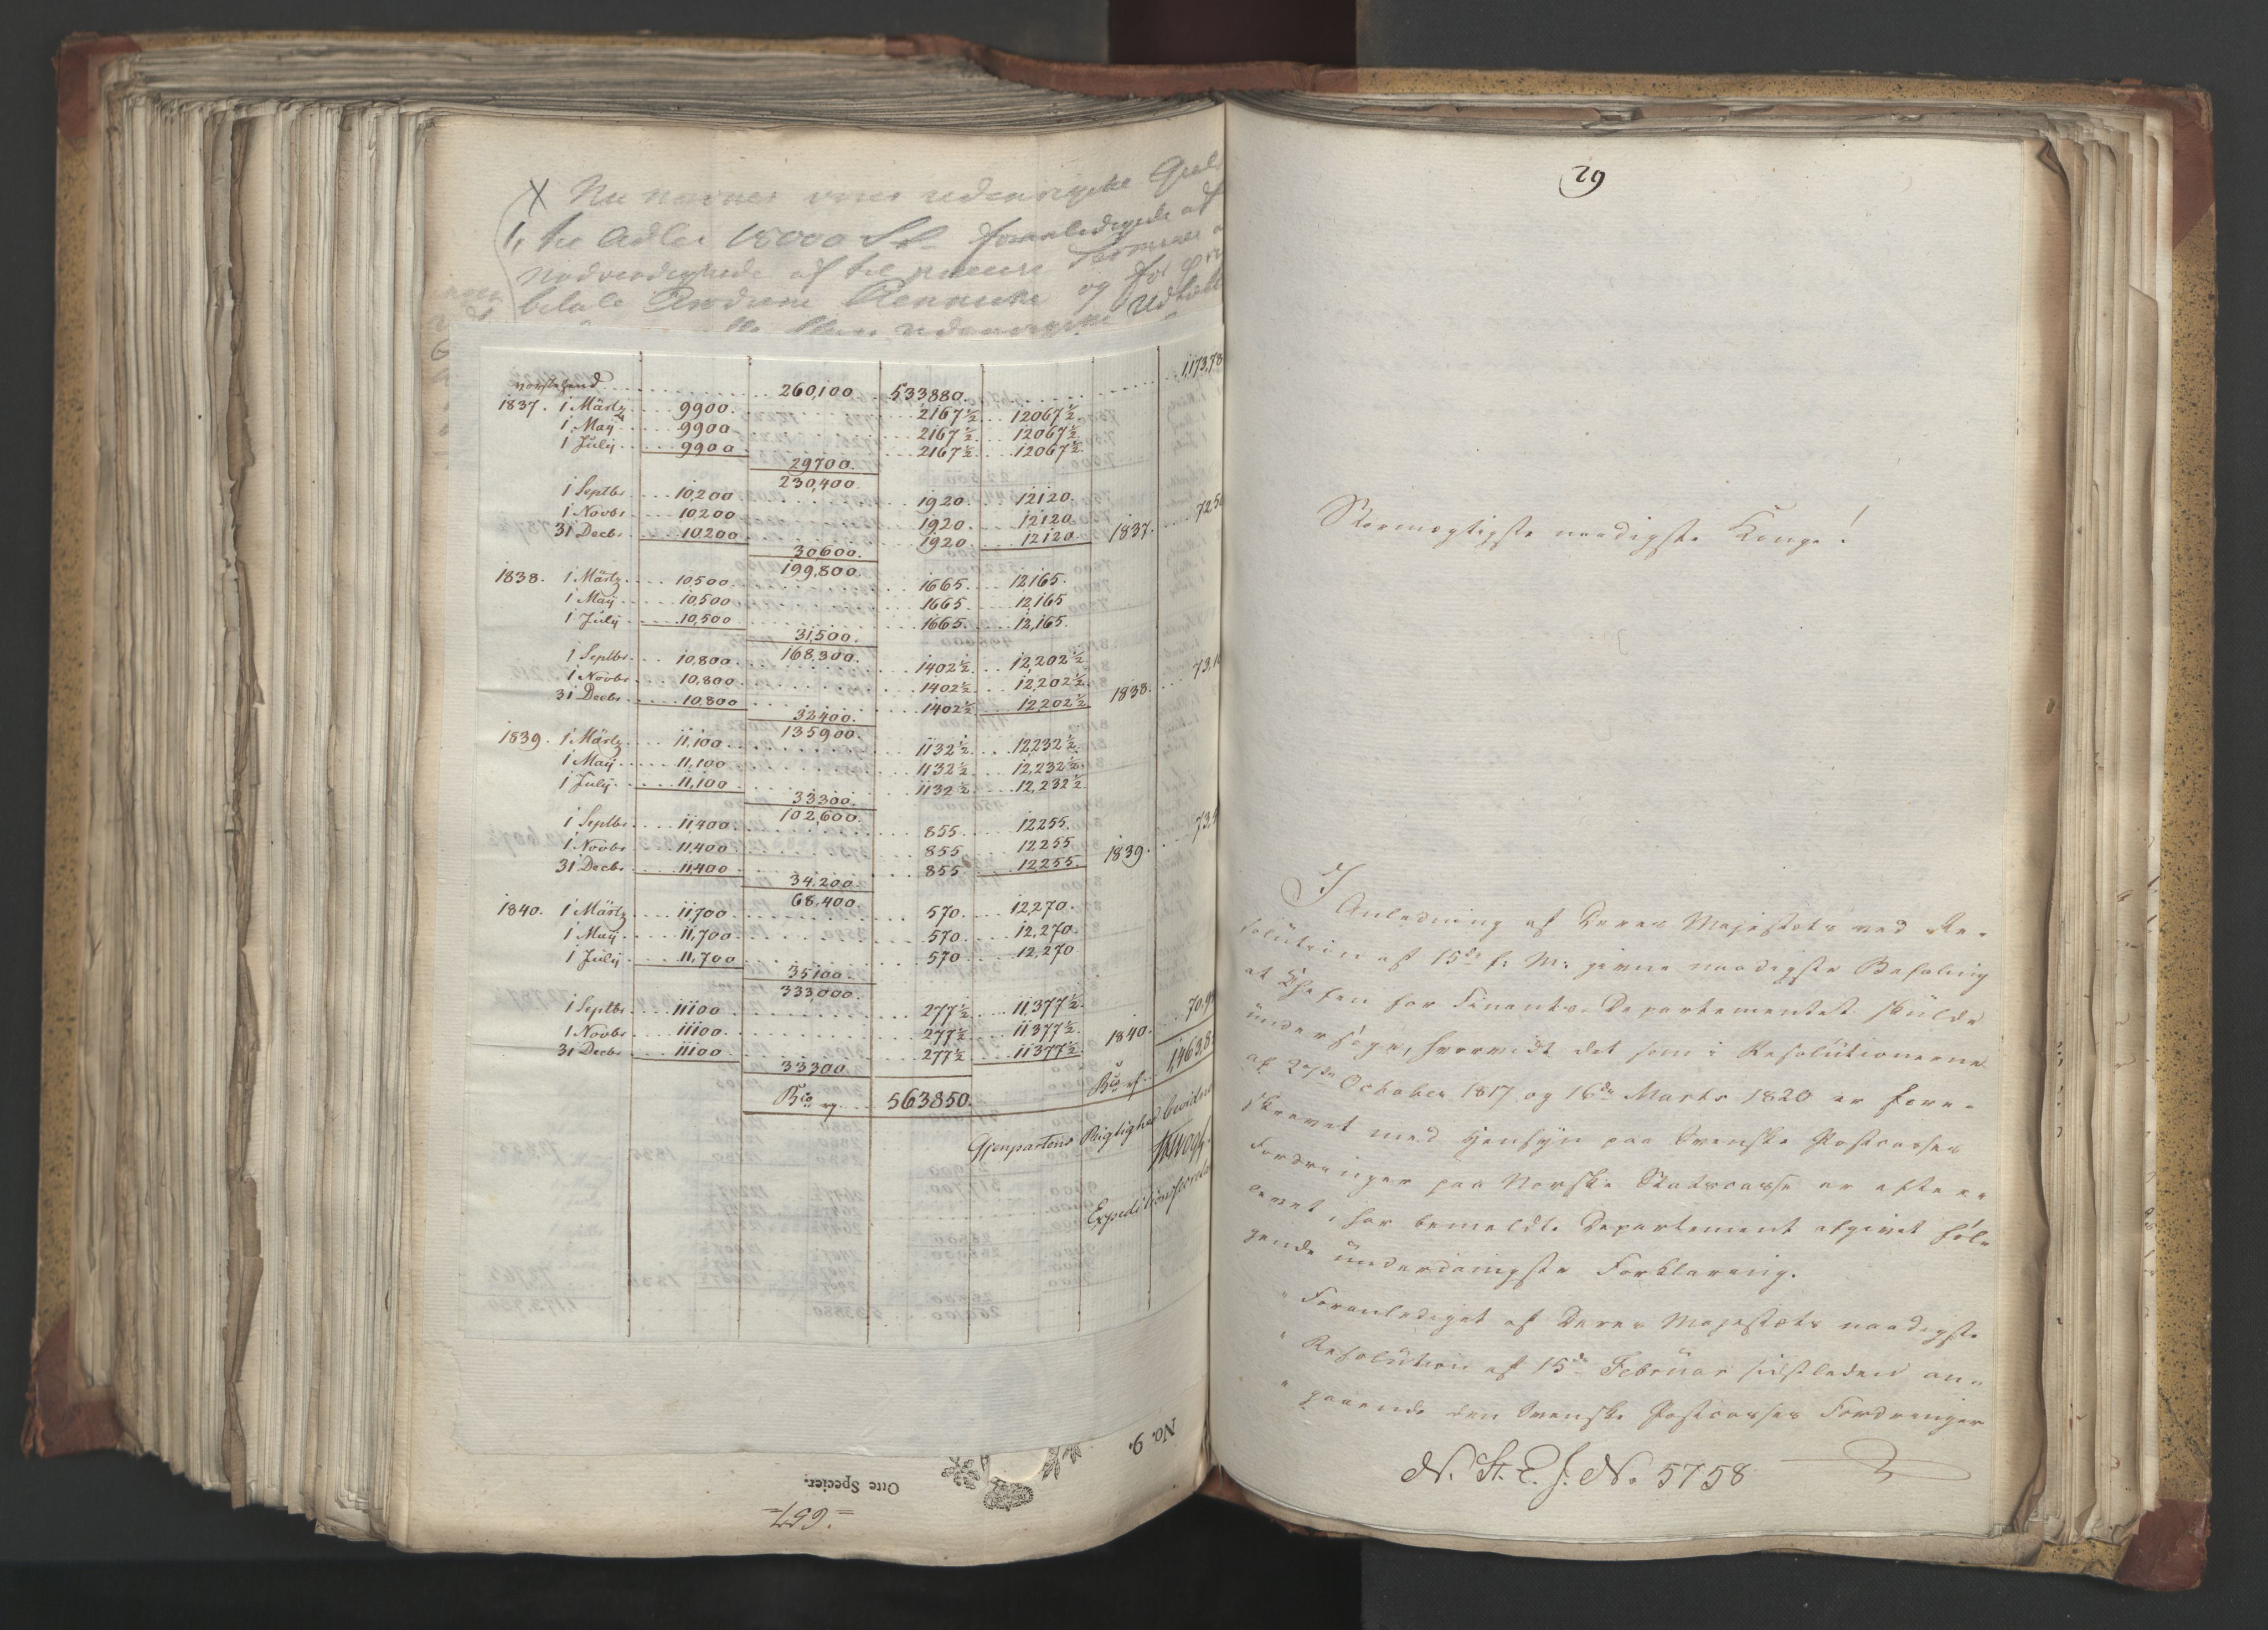 X Nu
1, til Adler 18000 Sp foranledigede af
Nødvendighede af til
betale og for
vorstehend 260,100 533880. 1,173,78
1837. 1 Märtz 9900. 2167½ 12067½
1 Maÿ 9900 2167½ 12067½
1 Julÿ 9900 2167½ 12067½
29700.
230,400
1 Septbr 10,200 1920. 12120.
1 Novbr 10200 1920. 12120
31 Decbr 10,200 1920. 12120 1837. 725
30600.
199,800.
1838. 1 Märtz 10,500. 1665. 12,165.
1 Maÿ 10,500 1665. 12,165
1 Julÿ 10,500 1665. 12,165.
31,500.
168,300.
1 Septbr 10,800. 1402½ 12,202½
1 Novbr 10,800. 1402½ 12,202½
31 Decbr 10,800 1402½ 12,202½ 1838. 73,1
32400.
135900.
1839. 1 Märtz 11,100. 1132½ 12232½
1 Maÿ 11,100 1132½ 12,232½
1 Julÿ 11,100 1132½ 12,232½
33300.
102,600.
1 Septbr 11,400. 855. 12255.
1 Novbr 11,400. 855. 12255
31 Decbr 11,400 855. 12255. 1839. 73,5
34,200.
68,400.
1840. 1 Märtz 11,700 570. 12,270.
1 Maÿ 11,700. 570. 12,270.
1 Julÿ 11,700 570 12,270
35,100.
333,000.
1 Septbr 11100 277½ 11,377½
1 Novbr 11100. 277½ 11377½
31 Decbr 11100 277½ 11377½ 1840. 70,9
33300
Bco 563850. Bco 1,463,8
Gjenpartens Rigtighed bevidne
Expeditionssecretair
No. 9.
Otte Specier.
=657=
29
Stormægtigste naadigste Konge!
I Anledning af Deres Majestæts ved Re-
solution af 15de f. M. givne naadigste Befaling
at Chefen for Finants-Departementet skulde
undersøge, hvorvidt det som i Resolutionerne
af 27de October 1817 og 16de Marts 1820 er fore-
skrevet med Hensyn paa Svenske Postcasses
Fordringer paa Norske Statscasse er efter-
levet, har bemeldte Departement afgivet føl-
gende underdanigste Forklaring.
" Foranlediget af Deres Majestæts naadigste
" Resolution af 15de Februar sidstleden an-
" gaaende den Svenske Postcasses Fordringer
N. St. E. J. No. 5758